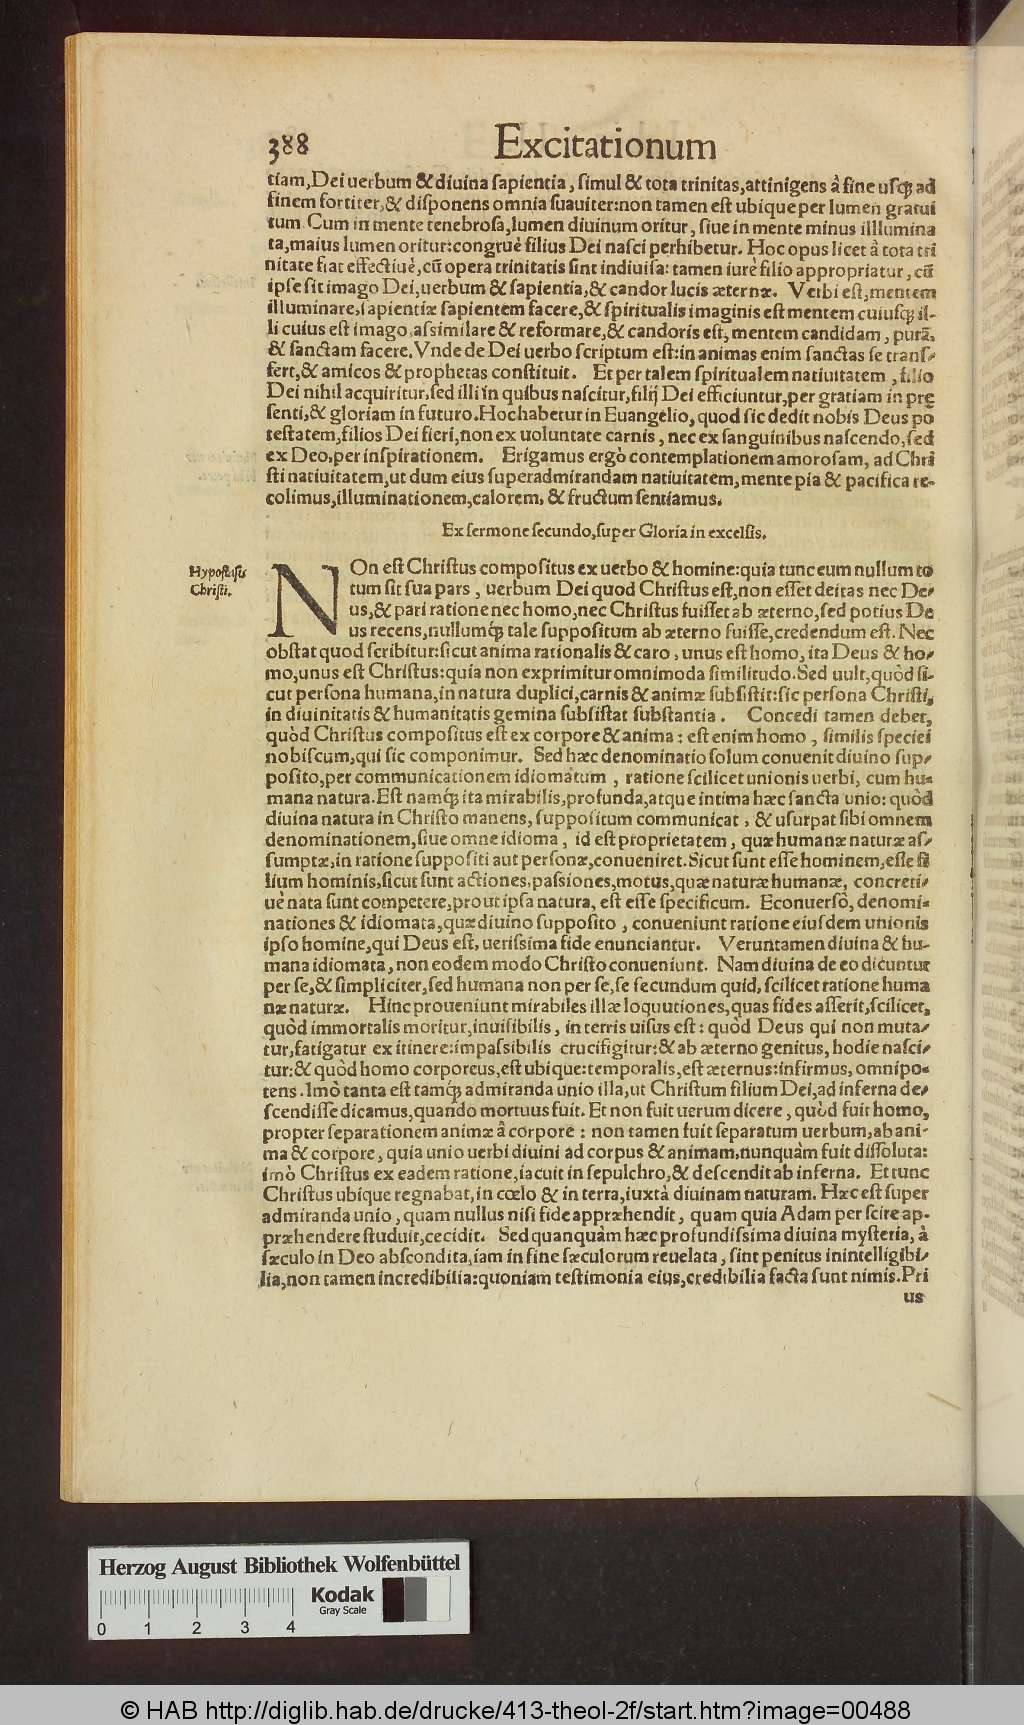 388 Excitationum
tiam, Dei uerbum & diuina sapientia, simul & tota trinitas, attinigens à fine usq; ad
finem fortiter, & disponens omnia suauiter: non tamen est ubique per lumen gratui
tum Cum in mente tenebrosa, lumen diuinum oritur, siue in mente minus illlumina
ta, maius lumen oritur: congruè filius Dei nasci perhibetur. Hoc opus licet â tota tri
nitate fiat effectiuè, cũ opera trinitatis sint indiuisa: tamen iurè filio appropriatur, cũ
ipse sit imago Dei, uerbum & sapientia, & candor lucis æternæ. Verbi est, mentem
illuminare, sapientiæ sapientem facere, & spiritualis imaginis est mentem cuiusq; il-
li cuius est imago assimilare & reformare, & candoris est, mentem candidam, purã,
& sanctam facere. Vnde de Dei uerbo scriptum est: in animas enim sanctas se trans-
fert, & amicos & prophetas constituit. Et per talem spiritualem natiuitatem, filio
Dei nihil acquiritur, sed illi in quibus nascitur, filij Dei efficiuntur, per gratiam in pre
senti, & gloriam in futuro. Hoc habetur in Euangelio, quod sic dedit nobis Deus po
testatem, filios Dei fieri, non ex uoluntate carnis, nec ex sanguinibus nascendo, sed
ex Deo, per inspirationem. Erigamus ergò contemplationem amorosam, ad Chri
sti natiuitatem, ut dum eius superadmirandam natiuitatem, mente pia & pacifica re-
colimus, illuminationem, calorem, & fructum sentiamus.
Ex sermone secundo, super Gloria in excelsis.
Hypostasis
Christi.
NOn est Christus compositus ex uerbo & homine: quia tunc eum nullum to
tum sit sua pars, uerbum Dei quod Christus est, non esset deitas nec De-
us, & pari ratione nec homo, nec Christus fuisset ab æterno, sed potius De
us recens, nullumq; tale suppositum ab æterno fuisse, credendum est. Nec
obstat quod scribitur: sicut anima rationalis & caro, unus est homo, ita Deus & ho-
mo, unus est Christus: quia non exprimitur omnimoda similitudo. Sed uult, quòd si-
cut persona humana, in natura duplici, carnis & animæ subsistit: sic persona Christi,
in diuinitatis & humanitatis gemina subsistat substantia. Concedi tamen debet,
quòd Christus compositus est ex corpore & anima: est enim homo, similis speciei
nobiscum, qui sic componimur. Sed hæc denominatio solum conuenit diuino sup-
posito, per communicationem idiomatum, ratione scilicet unionis uerbi, cum hu-
mana natura. Est namq; ita mirabilis, profunda, atque intima hæc sancta unio: quòd
diuina natura in Christo manens, suppositum communicat, & usurpat sibi omnem
denominationem, siue omne idioma, id est proprietatem, quæ humanæ naturæ as-
sumptæ, in ratione suppositi aut personæ, conueniret. Sicut sunt esse hominem, esse fi
lium hominis, sicut sunt actiones, passiones, motus, quæ naturæ humanæ, concreti-
uè nata sunt competere, prout ipsa natura, est esse specificum. Econuersò, denomi-
nationes & idiomata, quæ diuino supposito, conueniunt ratione eiusdem unionis
ipso homine, qui Deus est, uerissima fide enunciantur. Veruntamen diuina & hu-
mana idiomata, non eodem modo Christo conueniunt. Nam diuina de eo dicuntur
per se, & simpliciter, sed humana non per se, se secundum quid, scilicet ratione huma
næ naturæ. Hinc proueniunt mirabiles illæ loquutiones, quas fides asserit, scilicet,
quòd immortalis moritur, inuisibilis, in terris uisus est: quòd Deus qui non muta-
tur, fatigatur ex itinere: impassibilis crucifigitur: & ab æterno genitus, hodie nasci-
tur: & quòd homo corporeus, est ubique: temporalis, est æternus: infirmus, omnipo-
tens. Imò tanta est tamq; admiranda unio illa, ut Christum filium Dei, ad inferna de-
scendisse dicamus, quando mortuus fuit. Et non fuit uerum dicere, quòd fuit homo,
propter separationem animæ â corpore: non tamen fuit separatum uerbum, ab ani-
ma & corpore, quia unio uerbi diuini ad corpus & animam, nunquàm fuit dissoluta:
imò Christus ex eadem ratione, iacuit in sepulchro, & descendit ab inferna. Et tunc
Christus ubique regnabat, in cœlo & in terra, iuxtà diuinam naturam. Hæc est super
admiranda unio, quam nullus nisi fide appræhendit, quam quia Adam per scire ap-
præhendere studuit, cecidit. Sed quanquàm hæc profundissima diuina mysteria, à
sæculo in Deo abscondita, iam in fine sæculorum reuelata, sint penitus inintelligibi-
lia, non tamen incredibilia: quoniam testimonia eius, credibilia facta sunt nimis. Pri
us
Herzog August Bibliothek Wolfenbüttel
Kodak
Gray Scale
0 1 2 3 4
© HAB http://diglib.hab.de/drucke/413-theol-2f/start.htm?image=00488